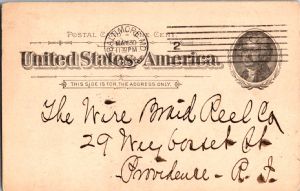 POSTAL CARD ONE CENT.
BALTIMORE MD
MAR 30
PM
2
United States of America.
THIS SIDE IS FOR THE ADDRESS ONLY.
The Wire Braid Reel Co
29 Weybosset St
Providence - R. I.